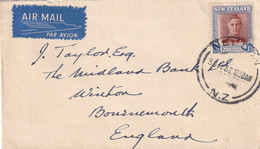 AIR MAIL
PAR AVION
NEW ZEALAND
J. Taylor. Esq.
The Midland Bank Ltd
Winton
Bournemouth
England
N.Z